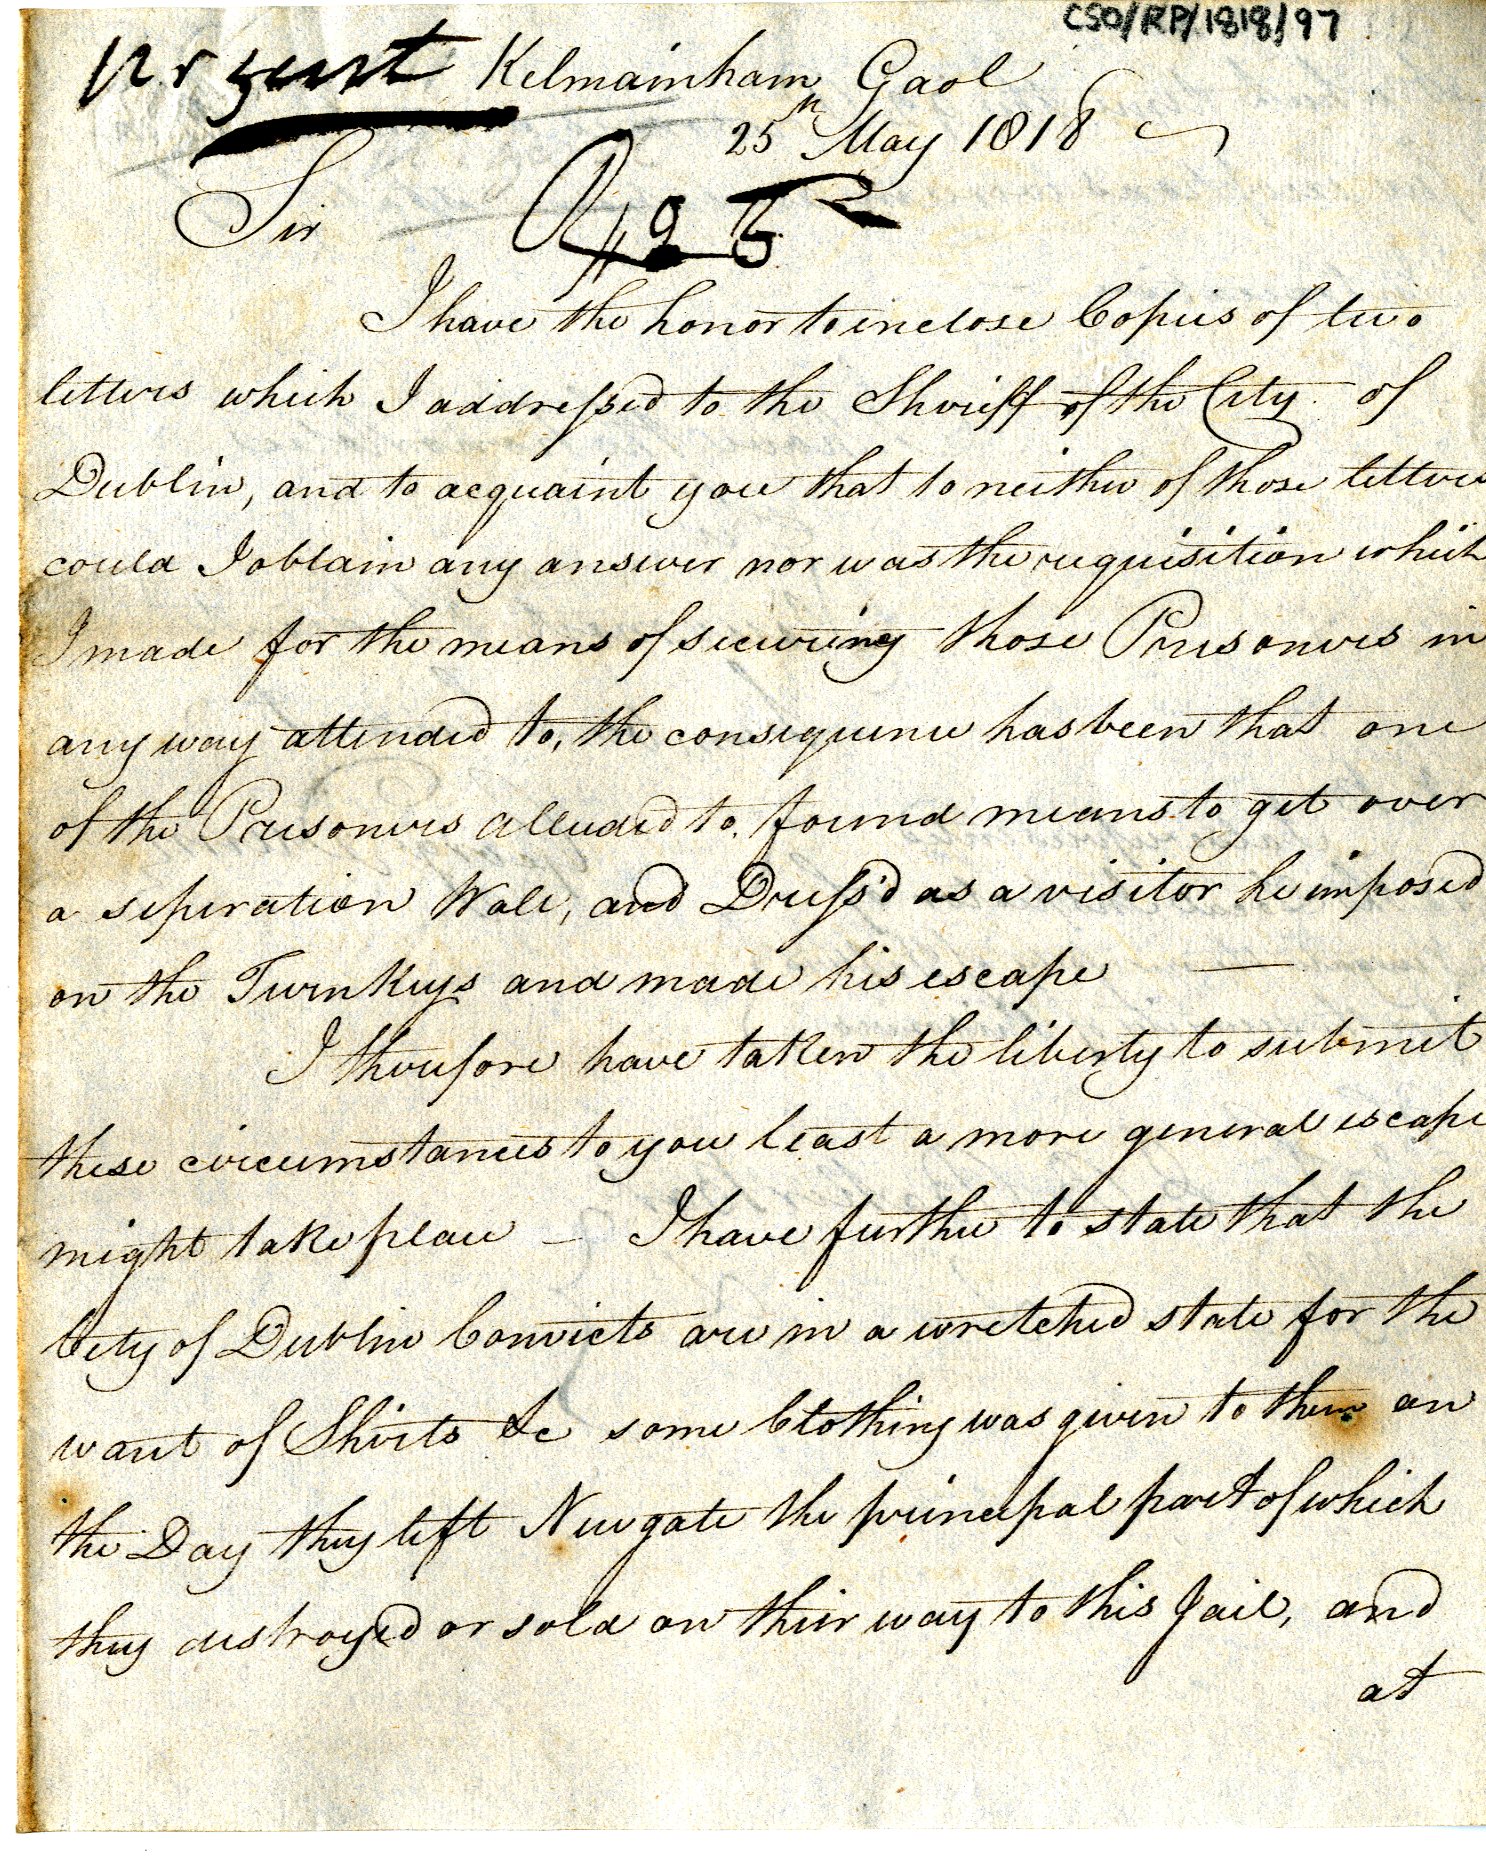 CSO/RP/1818/97
Urgent Kelmainham Gaol
25th May 1818
Sir
I have the honor to inclose Copies of two
letters which I addressed to the Sheriff of the City of
Dublin, and to acquaint you that to neither of those letters
could I obtain any answer nor was the requisition which
I made for the means of secureing those Prisoners in
any way attended to, the consequence has been that one
of the Prisoners alluded to, found means to get over
a seperation Wall, and Dress'd as a visitor he imposed
on the Turnkeys and made his escape —
I therefore have taken the liberty to submit
these circumstances to you least a more general escape
might take place — I have further to state that the
City of Dublin Convicts are in a wretched state for the
want of Shirts &c some Clothing was given to them on
the Day they left Newgate the principal part of which
they destroyed or sold on their way to this Jail, and
at